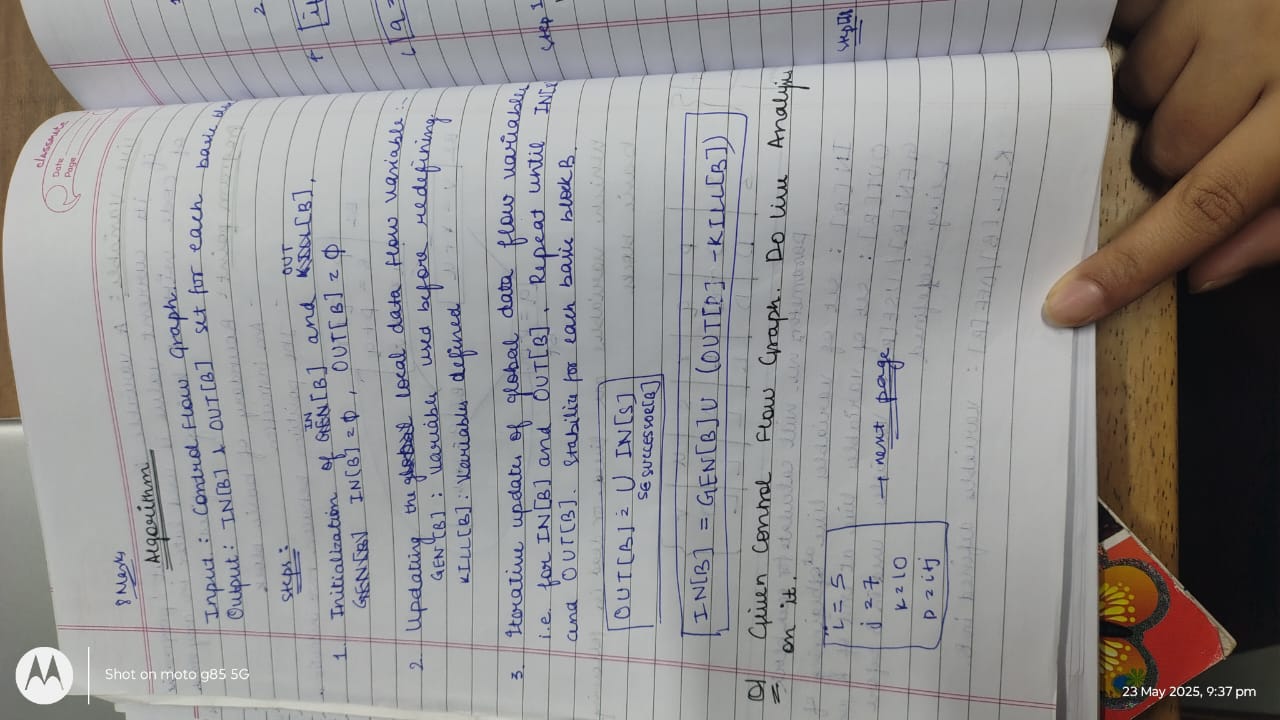 classmate
Date
Page
8 Marks
Algorithm
Input : Control Flow Graph.
Output : IN[B] & OUT[B] set for each basic
Steps :
1. Initialization of GEN IN[B] and KILL OUT[B],
GEN[B] IN[B] = ϕ, OUT[B] = ϕ
2. Updating the global local data flow variable :-
GEN[B] : Variables used before redefining.
KILL[B] : Variables defined
3. Iterative updates of global data flow variables
i.e. for IN[B] and OUT[B]. Repeat until
and OUT[B]. Stabilize for each basic block B.
OUT[B] = U IN[S]
S∈SUCCESSOR[B]
IN[B] = GEN[B] U (OUT[B] - KILL[B])
Q) Given Control Flow Graph. Do live Analysis
on it.
i = 5
j = 7
k = 10
p = i+j
→ next page
2
a =
Step I
Shot on moto g85 5G
23 May 2025, 9:37 pm